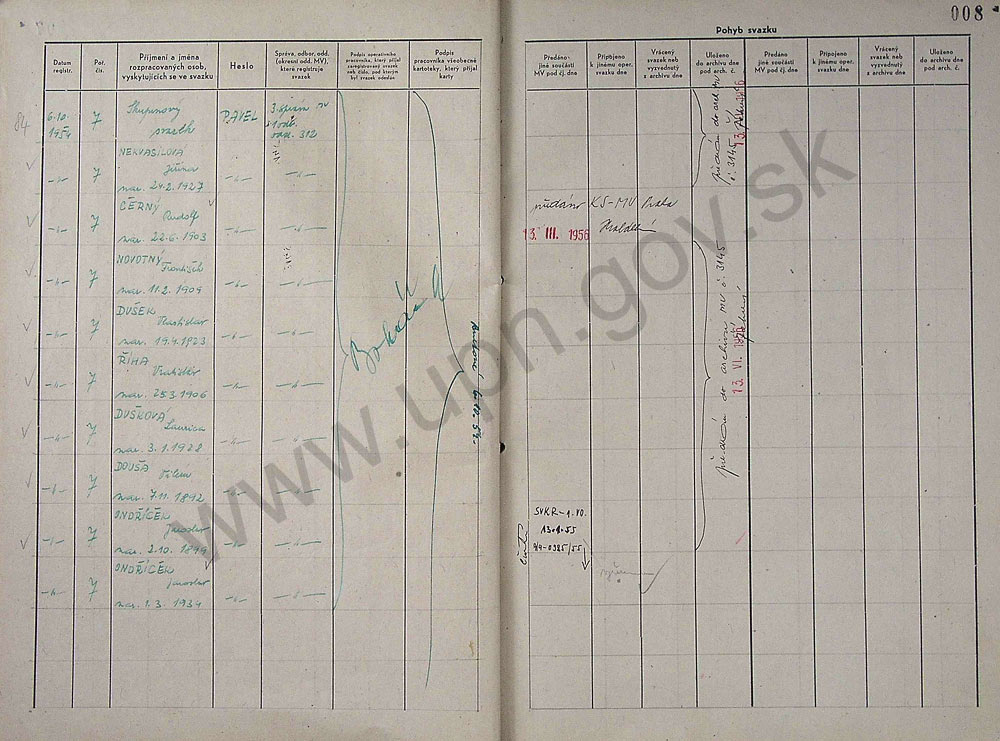 008
Pohyb svazku
Datum
registr.
Poř.
čís.
Příjmení a jména
rozpracovaných osob,
vyskytujících se ve svazku
Heslo
Správa, odbor, odd.
(okresní odd. MV),
které registruje
svazek
Podpis operativního
pracovníka, který přijal
zaregistrovaný svazek
neb číslo, pod kterým
byl svazek odeslán
Podpis
pracovníka všeobecné
kartoteky, který přijal
karty
Předáno
jiné součásti
MV pod čj. dne
Připojeno
k jinému oper.
svazku dne
Vrácený
svazek neb
vyzvednutý
z archivu dne
Uloženo
do archivu dne
pod arch. č.
Předáno
jiné součásti
MV pod čj. dne
Připojeno
k jinému oper.
svazku dne
Vrácený
svazek neb
vyzvednutý
z archivu dne
Uloženo
do archivu dne
pod arch. č.
84
6.10.
1954
7
Skupinový
svazek
PAVEL
3. správa MV
1 odb.
312
-"- 7 NEKVASILOVÁ
Jiřina
nar. 24.2.1927
-"- -"-
-"- 7 ČERNÝ
Rudolf
nar. 22.6.1903
-"- -"-
-"- 7 NOVOTNÝ
František
nar. 11.2.1909
-"- -"-
-"- 7 DUŠEK
Vlastislav
nar. 19.4.1923
-"- -"-
-"- 7 ŘÍHA
Vratislav
nar. 25.3.1906
-"- -"-
-"- 7 DUŠKOVÁ
nar. 3.1.1922
-"- -"-
-"- 7 DOUŠA
nar. 7.11.1892
-"- -"-
-"- 7 ONDŘÍČEK
Jaroslav
nar. 2.10.1899
-"- -"-
-"- 7 ONDŘÍČEK
Jaroslav
nar. 1.3.1934
-"- -"-
předáno KS-MV Praha
13. III. 1956
č. 3145
předáno do archivu MV č. 3145
13. VI.
SVKR-1. VO.
55
www.upn.gov.sk